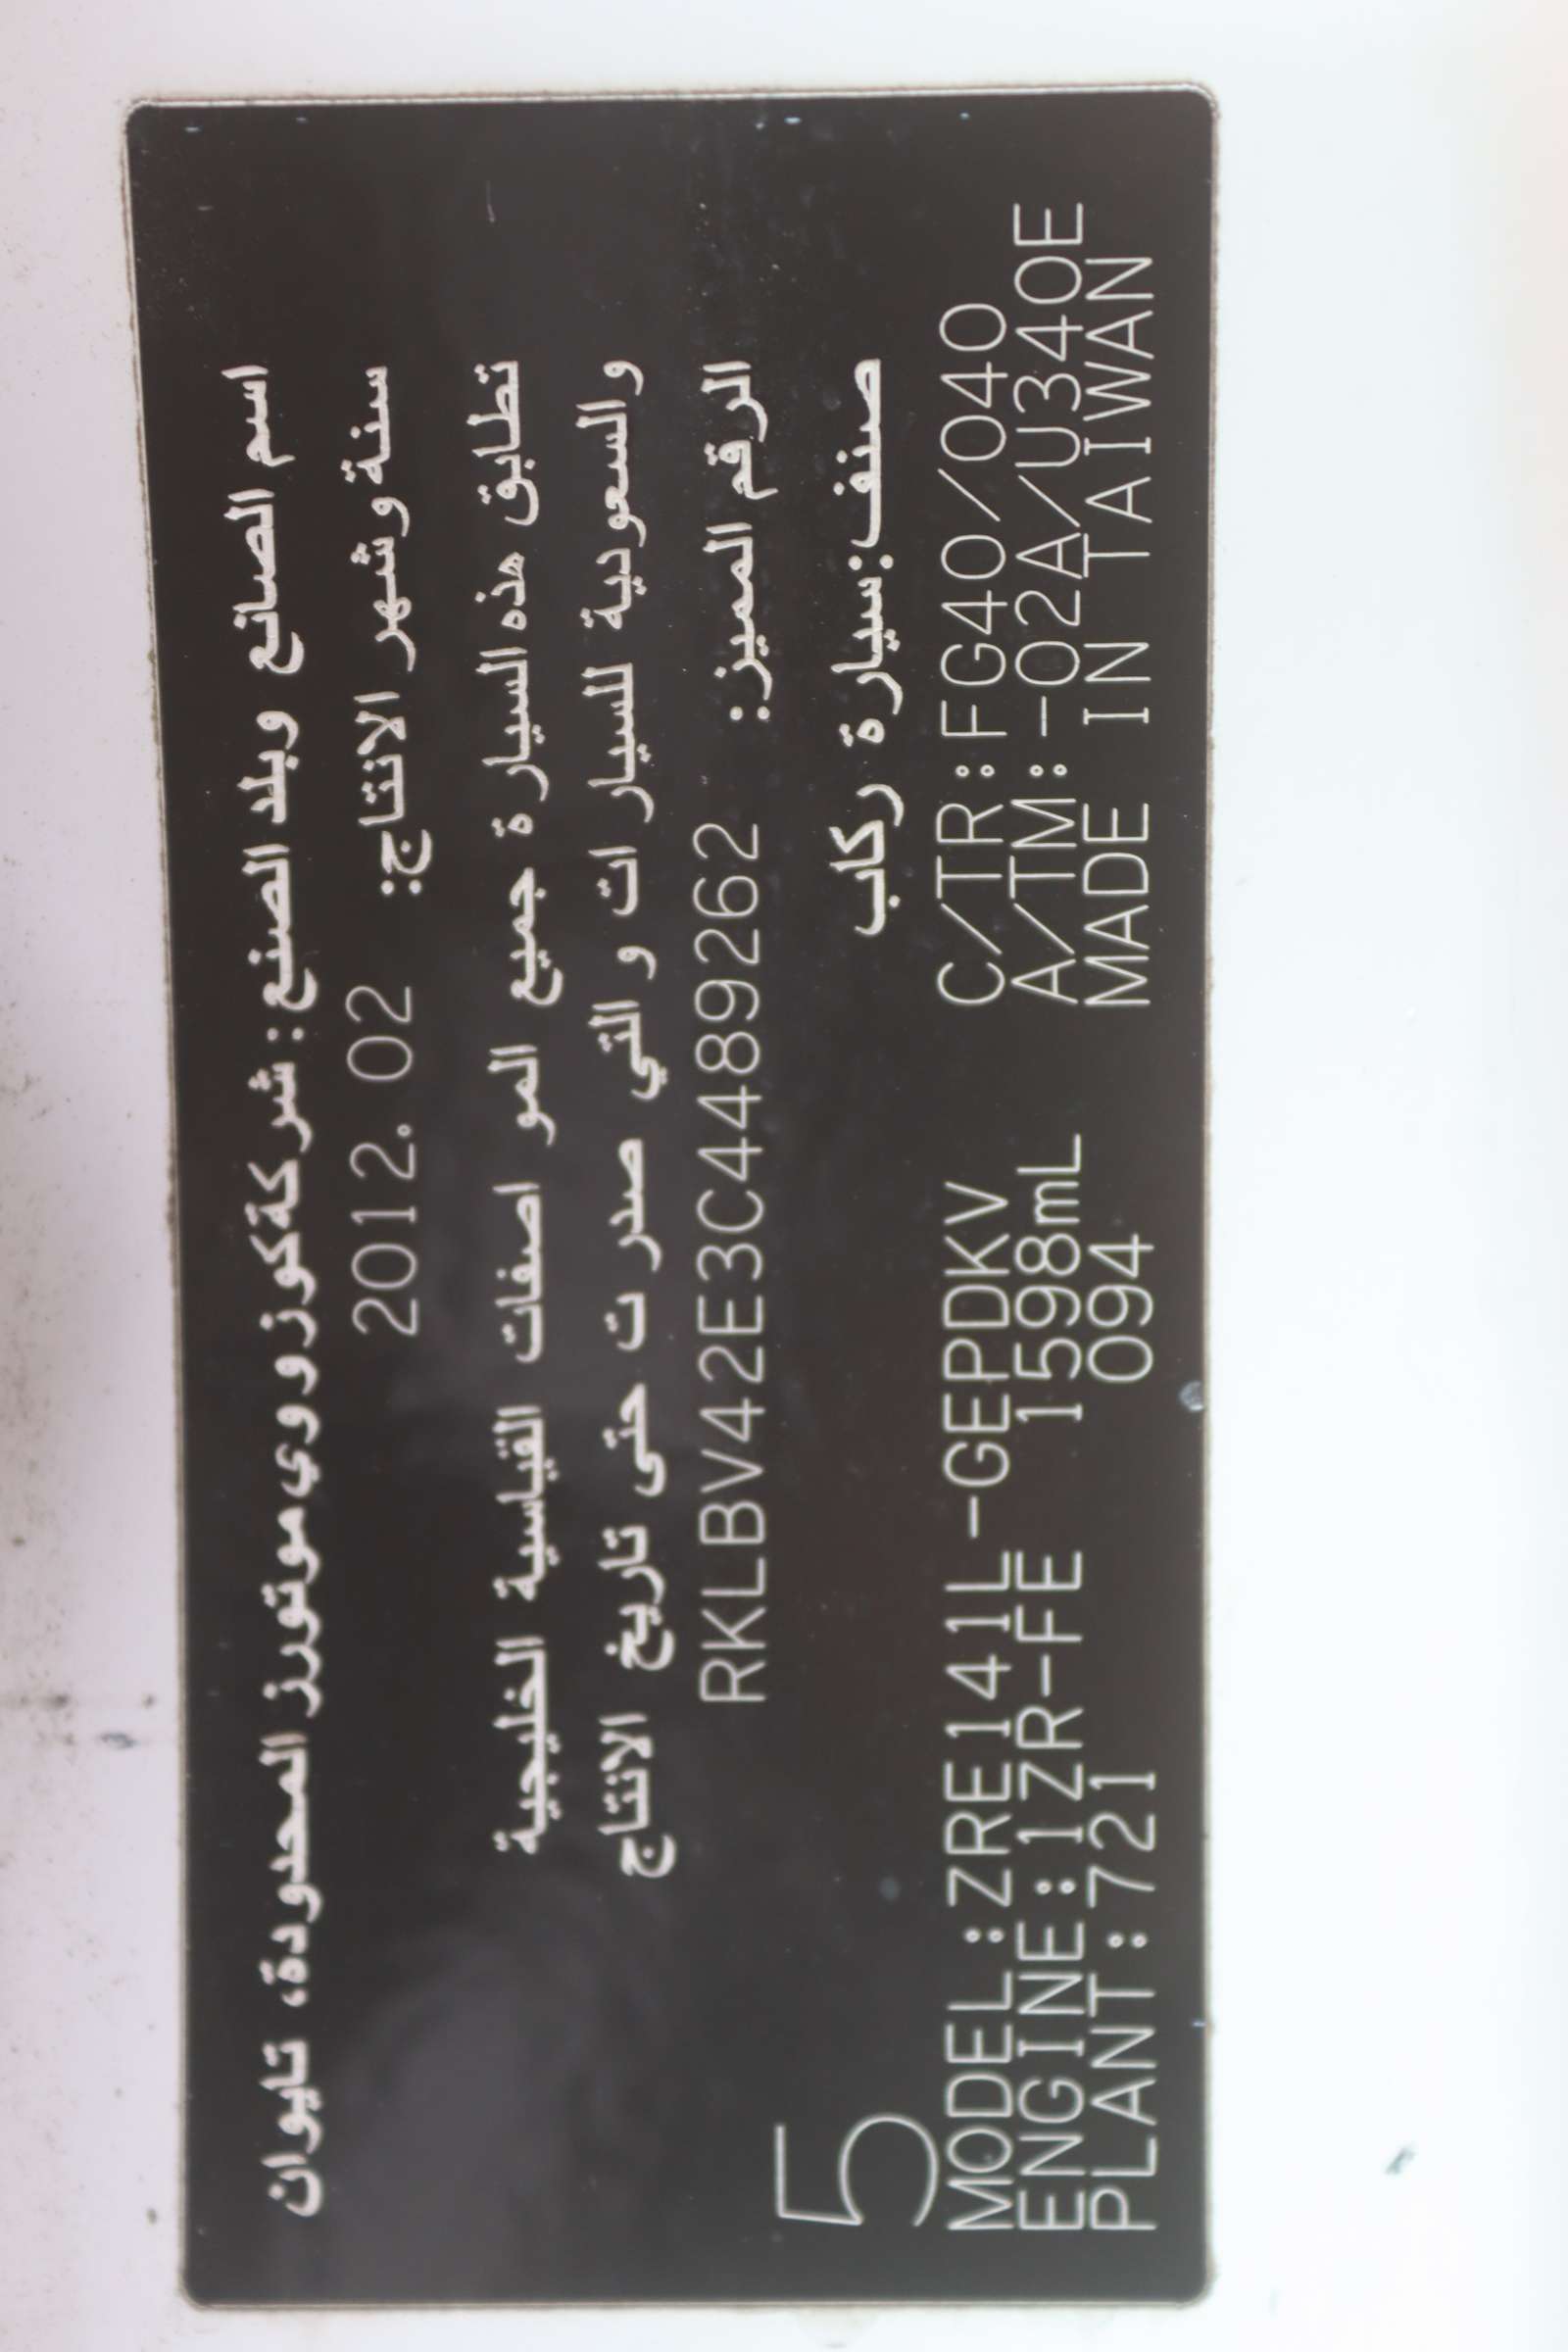 اسم الصانع وبلد الصنع: شركة كوزووي موتورز المحدودة، تايوان
سنة وشهر الانتاج: 2012. 02
تطابق هذه السيارة جميع المواصفات القياسية الخليجية
والسعودية للسيارات والتي صدرت حتى تاريخ الانتاج
الرقم المميز: RKLBV42E3C4489262
صنف: سيارة ركاب
5
MODEL:ZRE141L-GEPDKV C/TR:FG40/040
ENGINE:1ZR-FE 1598mL A/TM:-02A/U340E
PLANT:721 094 MADE IN TAIWAN